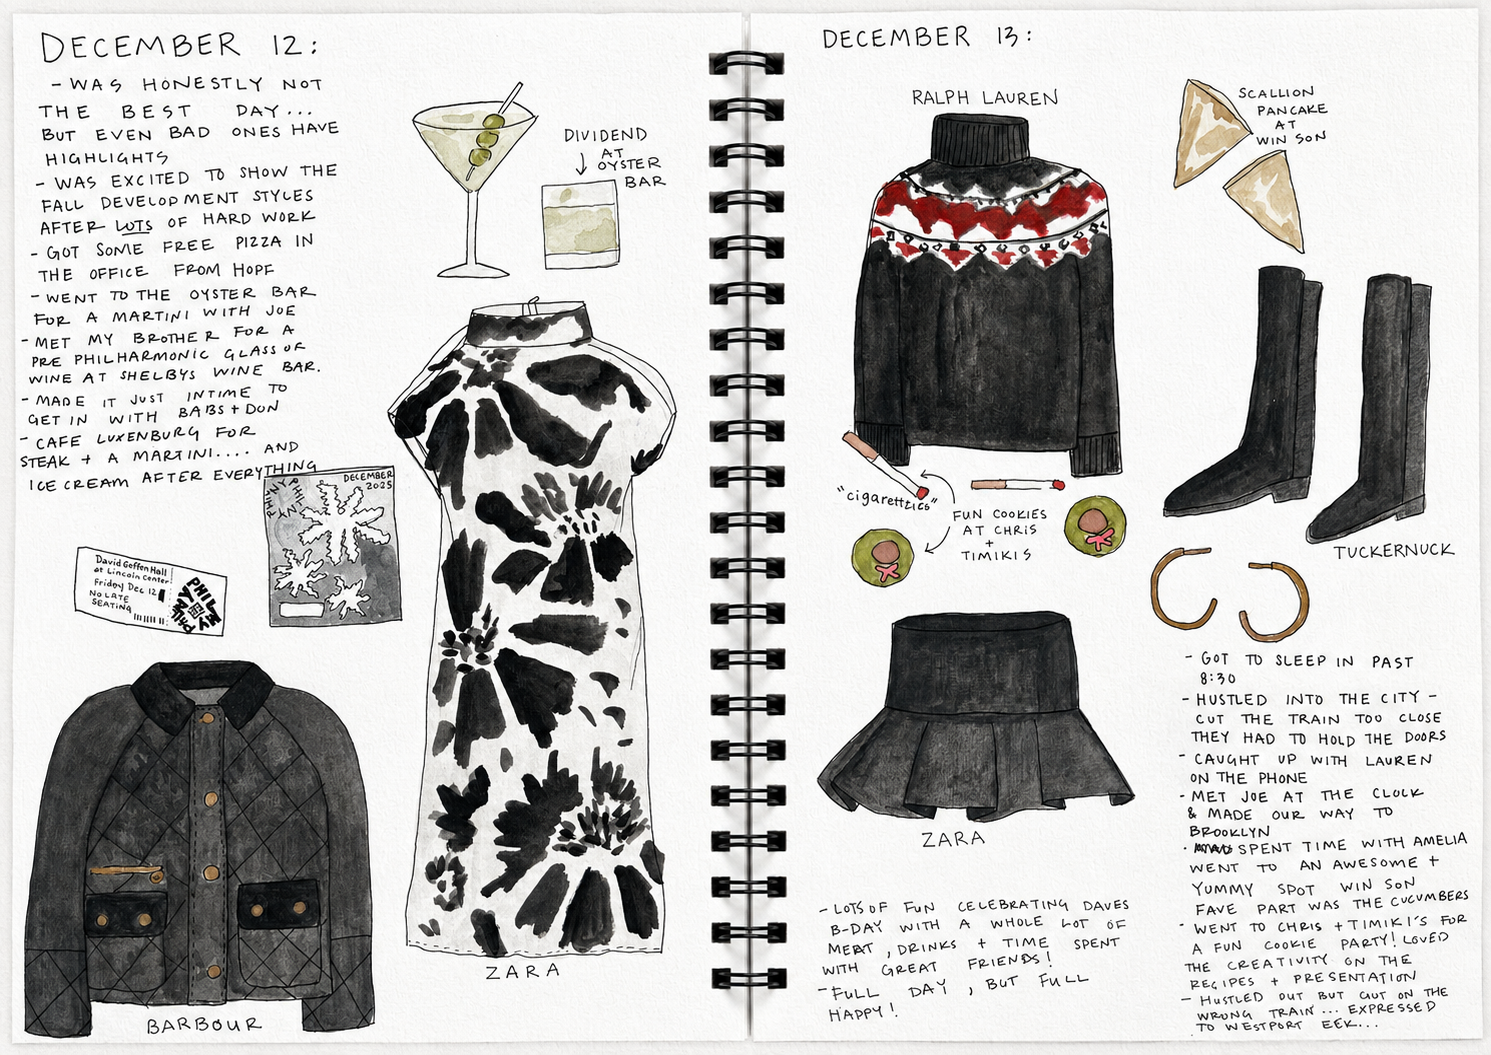 DECEMBER 12:
- WAS HONESTLY NOT
THE BEST DAY...
BUT EVEN BAD ONES HAVE
HIGHLIGHTS
- WAS EXCITED TO SHOW THE
FALL DEVELOPMENT STYLES
AFTER LOTS OF HARD WORK
- GOT SOME FREE PIZZA IN
THE OFFICE FROM HOPF
- WENT TO THE OYSTER BAR
FOR A MARTINI WITH JOE
- MET MY BROTHER FOR A
PRE PHILHARMONIC GLASS OF
WINE AT SHELBYS WINE BAR.
- MADE IT JUST INTIME TO
GET IN WITH BABS + DON
- CAFE LUXENBURG FOR
STEAK + A MARTINI.... AND
ICE CREAM AFTER EVERYTHING
DIVIDEND
AT
OYSTER
BAR
DECEMBER
2025
David Geffen Hall
at Lincoln Center
Friday Dec 12
NO LATE
SEATING
BARBOUR
ZARA
DECEMBER 13:
RALPH LAUREN
SCALLION
PANCAKE
AT
WIN SON
"cigarettties"
FUN COOKIES
AT CHRIS
+
TIMIKIS
TUCKERNUCK
ZARA
- LOTS OF FUN CELEBRATING DAVES
B-DAY WITH A WHOLE LOT OF
MEAT, DRINKS + TIME SPENT
WITH GREAT FRIENDS!
- FULL DAY, BUT FULL
HAPPY!
- GOT TO SLEEP IN PAST
8:30
- HUSTLED INTO THE CITY -
CUT THE TRAIN TOO CLOSE
THEY HAD TO HOLD THE DOORS
- CAUGHT UP WITH LAUREN
ON THE PHONE
- MET JOE AT THE CLOCK
& MADE OUR WAY TO
BROOKLYN
· SPENT TIME WITH AMELIA
WENT TO AN AWESOME +
YUMMY SPOT WIN SON
FAVE PART WAS THE CUCUMBERS
- WENT TO CHRIS + TIMIKI'S FOR
A FUN COOKIE PARTY! LOVED
THE CREATIVITY ON THE
RECIPES + PRESENTATION
- HUSTLED OUT BUT GOT ON THE
WRONG TRAIN... EXPRESSED
TO WESTPORT EEK...